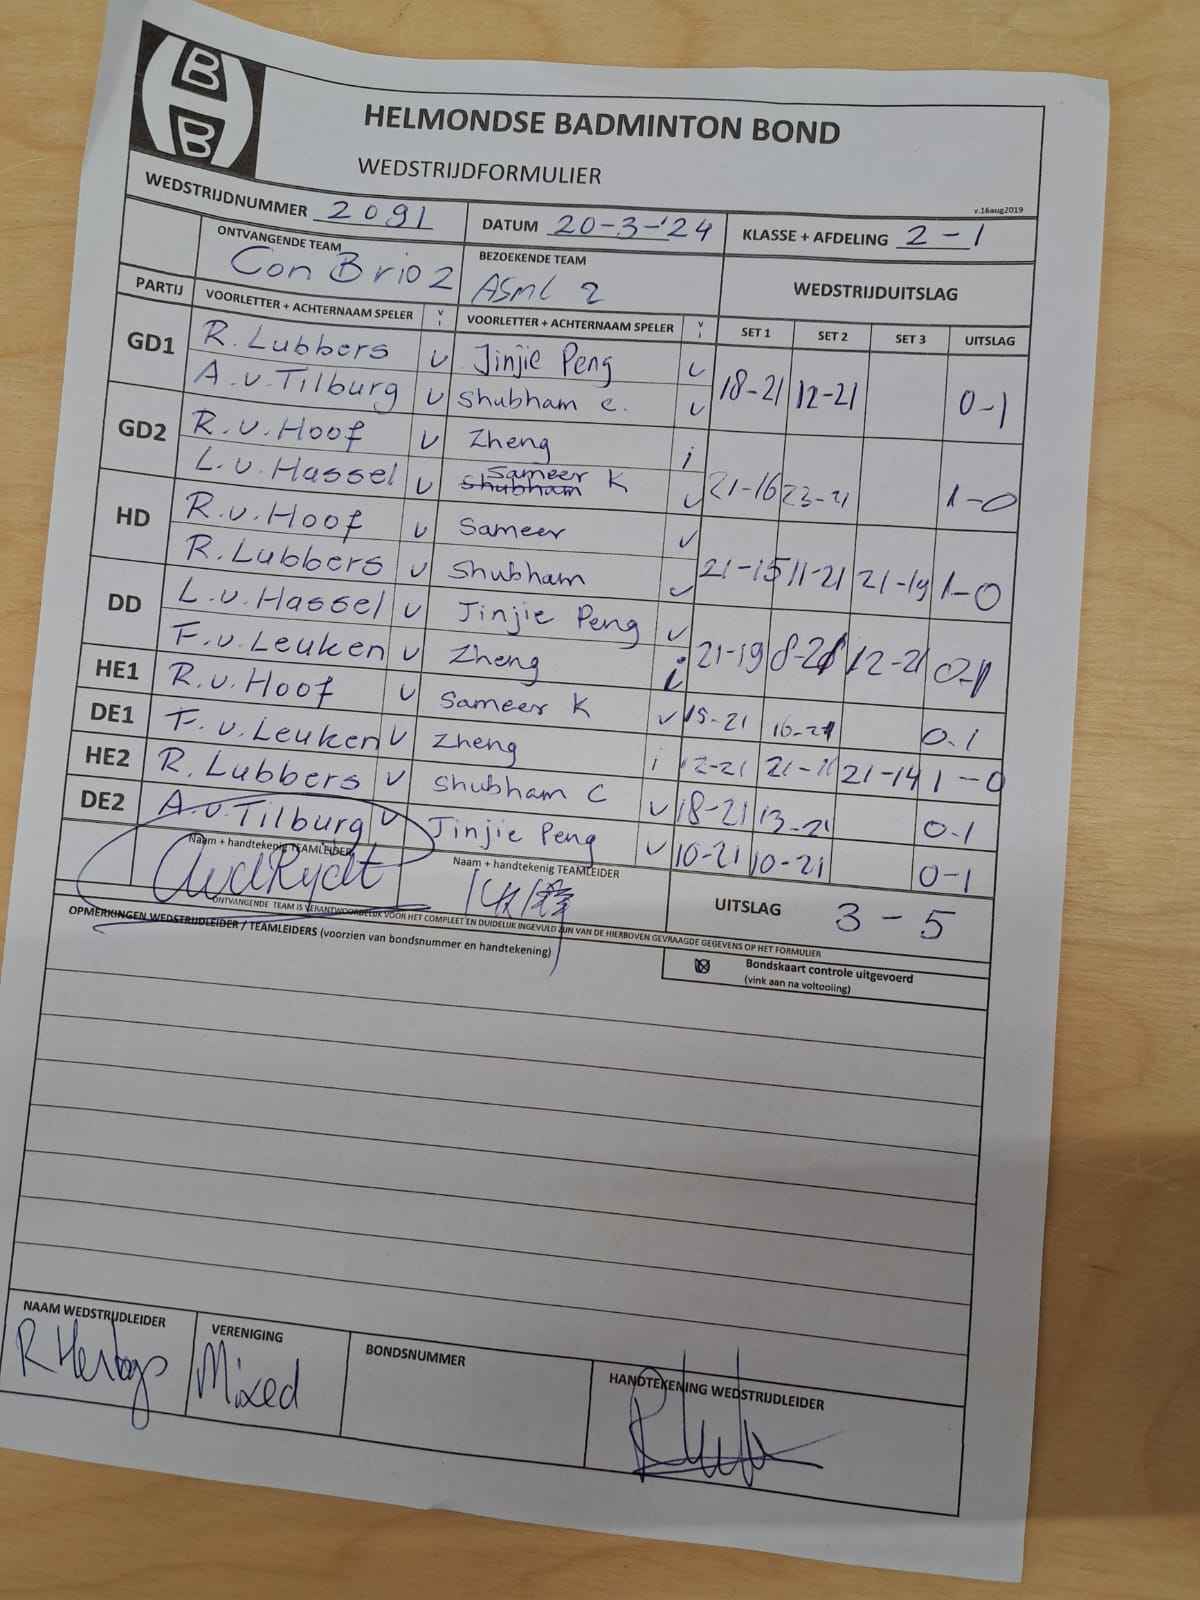 B
B
HELMONDSE BADMINTON BOND
WEDSTRIJDFORMULIER
v.16aug2019
WEDSTRIJDNUMMER 2091 DATUM 20-3-'24 KLASSE + AFDELING 2-1
ONTVANGENDE TEAM BEZOEKENDE TEAM WEDSTRIJDUITSLAG
Con Brio 2 ASML 2
PARTIJ VOORLETTER + ACHTERNAAM SPELER V I VOORLETTER + ACHTERNAAM SPELER V I SET 1 SET 2 SET 3 UITSLAG
GD1 R. Lubbers v Jinjie Peng v 18-21 12-21 0-1
A.v.Tilburg v Shubham c. v
GD2 R.v.Hoof v Zheng i 21-16 23-21 1-0
L.v.Hassel v Sameer K v
HD R.v.Hoof v Sameer v 21-15 11-21 21-19 1-0
R.Lubbers v Shubham v
DD L.v.Hassel v Jinjie Peng v 21-19 8-21 12-21 0-1
F.v.Leuken v Zheng i
HE1 R.v.Hoof v Sameer K v 15-21 16-21 0-1
DE1 F.v.Leuken v Zheng i 12-21 21-11 21-14 1-0
HE2 R.Lubbers v Shubham C v 18-21 13-21 0-1
DE2 A.v.Tilburg v Jinjie Peng v 10-21 10-21 0-1
Naam + handtekenig TEAMLEIDER Naam + handtekenig TEAMLEIDER UITSLAG 3-5
AvdRydt
ONTVANGENDE TEAM IS VERANTWOORDELIJK VOOR HET COMPLEET EN DUIDELIJK INGEVULD ZIJN VAN DE HIERBOVEN GEVRAAGDE GEGEVENS OP HET FORMULIER
OPMERKINGEN WEDSTRIJDLEIDER / TEAMLEIDERS (voorzien van bondsnummer en handtekening)
Bondskaart controle uitgevoerd
(vink aan na voltooiing)
NAAM WEDSTRIJDLEIDER VERENIGING BONDSNUMMER HANDTEKENING WEDSTRIJDLEIDER
R Mixed